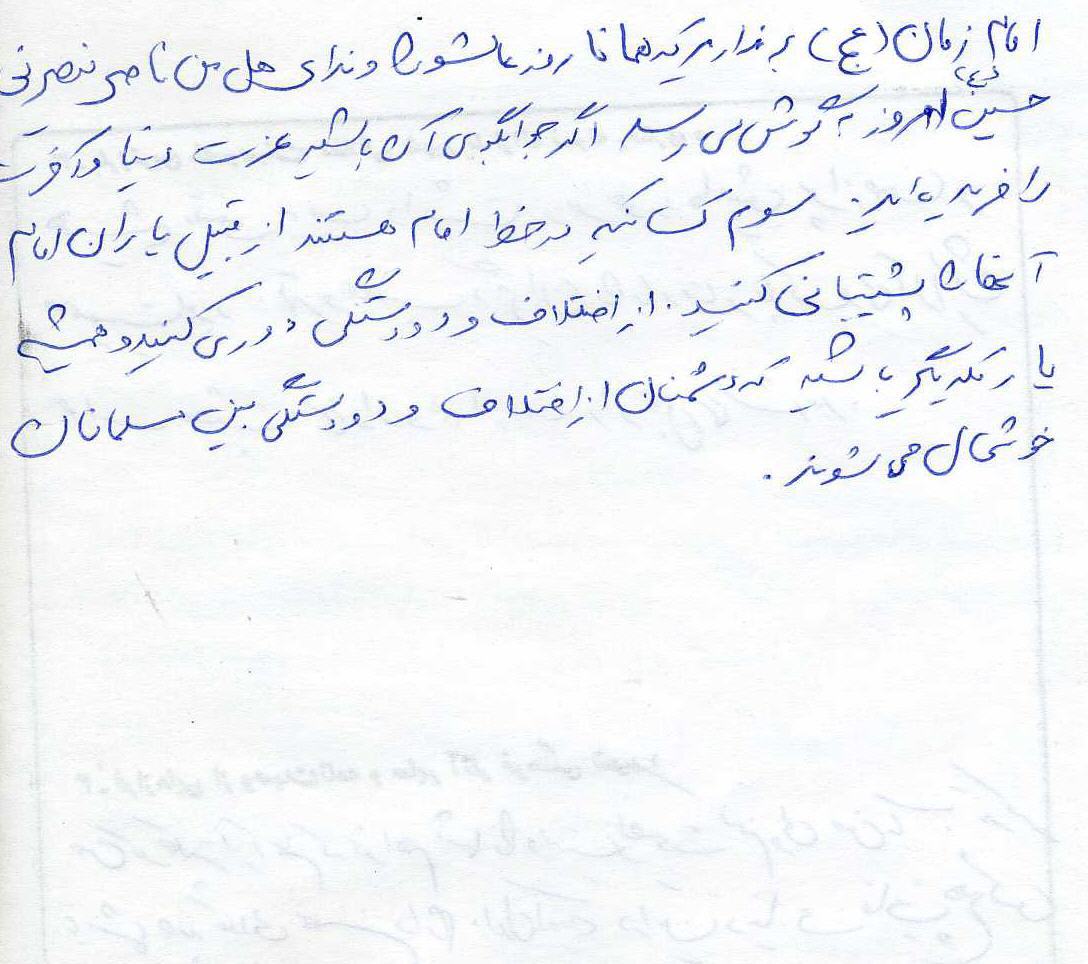 امام زمان (عج) برندارید که همانا روز عاشورا و ندای هل من ناصر ینصرنی
حسین (ع) امروز به گوش می رسد اگر جوابگوی آن باشید عزت دنیا و آخرت
را خریده اید. سوم کسانیکه در خط امام هستند از قبیل یاران امام
آنها را پشتیبانی کنید. از اختلاف و دودستگی دوری کنید و همیشه
یار یکدیگر باشید که دشمنان از اختلاف و دودستگی بین مسلمانان
خوشحال می شوند.